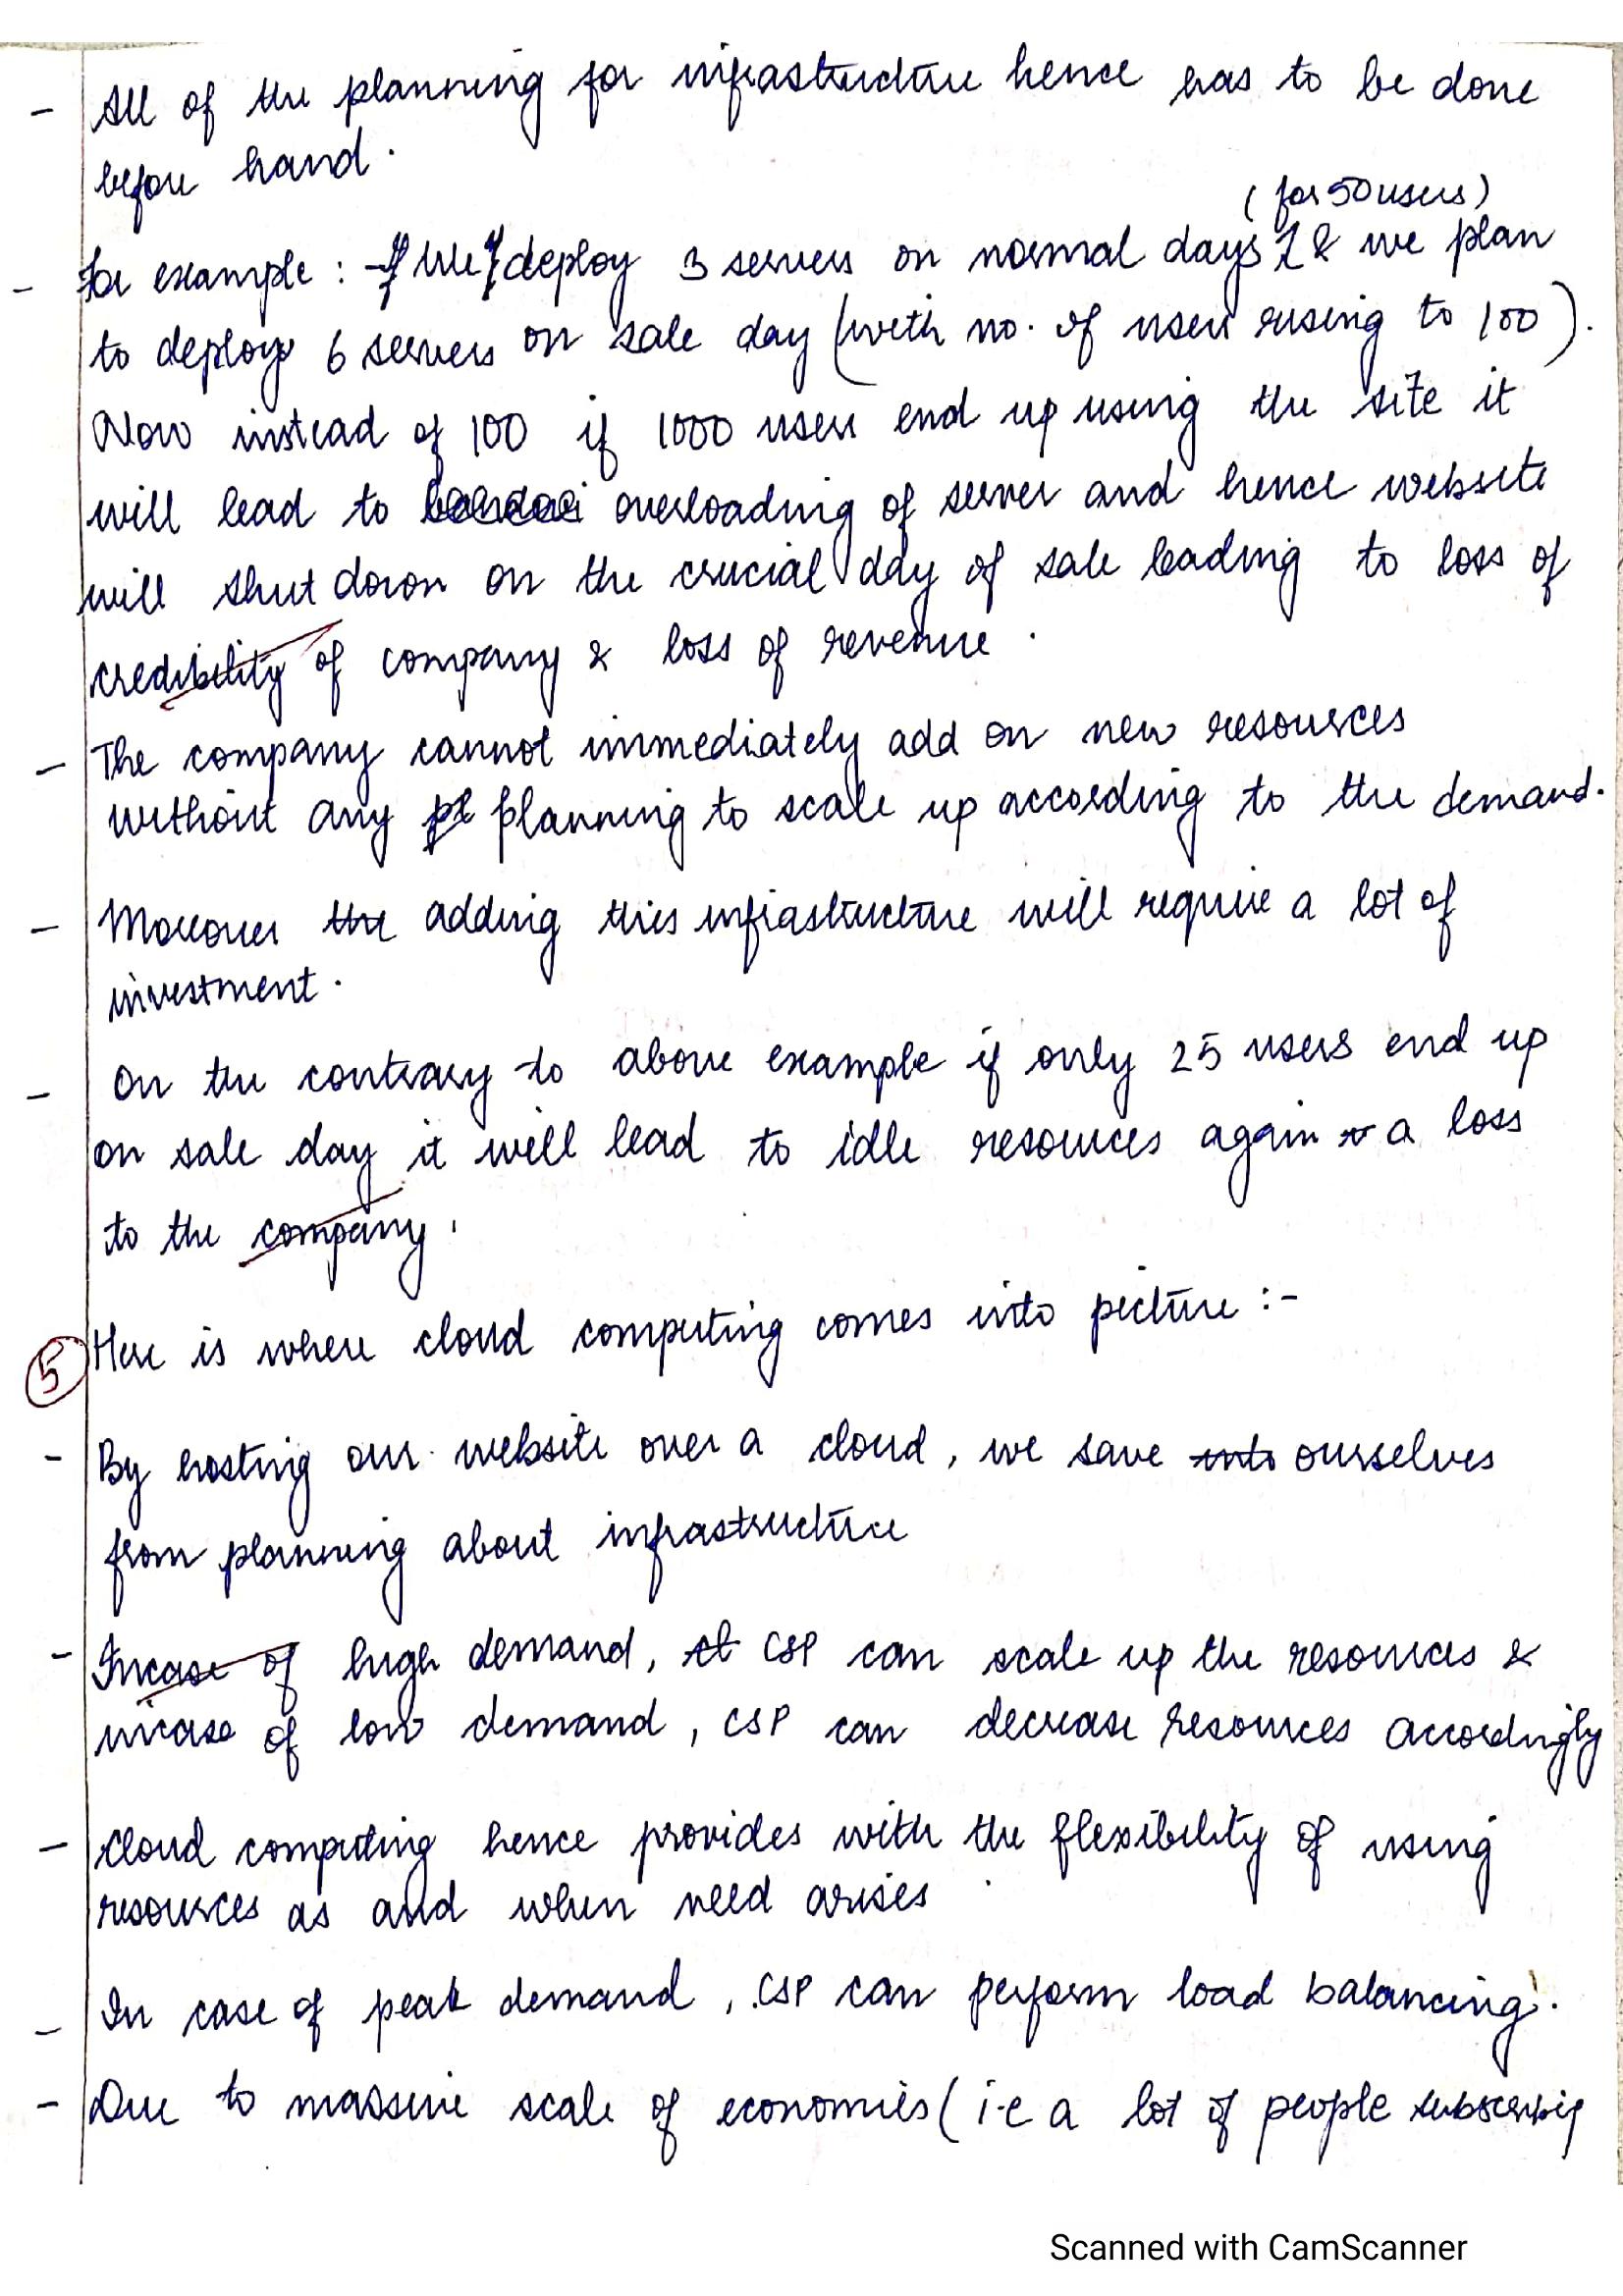 - All of the planning for infrastructure hence has to be done
before hand.
(for 50 users)
- For example: If we deploy 3 servers on normal days & we plan
to deploy 6 servers on sale day (with no. of users rising to 100).
Now instead of 100 if 1000 users end up using the site it
will lead to overloading of server and hence website
will shut down on the crucial day of sale leading to loss of
credibility of company & loss of revenue.
- The company cannot immediately add on new resources
without any planning to scale up according to the demand.
- Moreover adding this infrastructure will require a lot of
investment.
- On the contrary to above example if only 25 users end up
on sale day it will lead to idle resources again a loss
to the company.
5 Here is where cloud computing comes into picture :-
- By hosting our website over a cloud, we save ourselves
from planning about infrastructure
- Incase of high demand, CSP can scale up the resources &
incase of low demand, CSP can decrease resources accordingly
- Cloud computing hence provides with the flexibility of using
resources as and when need arises
- In case of peak demand, CSP can perform load balancing.
- Due to massive scale of economies (i.e a lot of people subscribing
Scanned with CamScanner